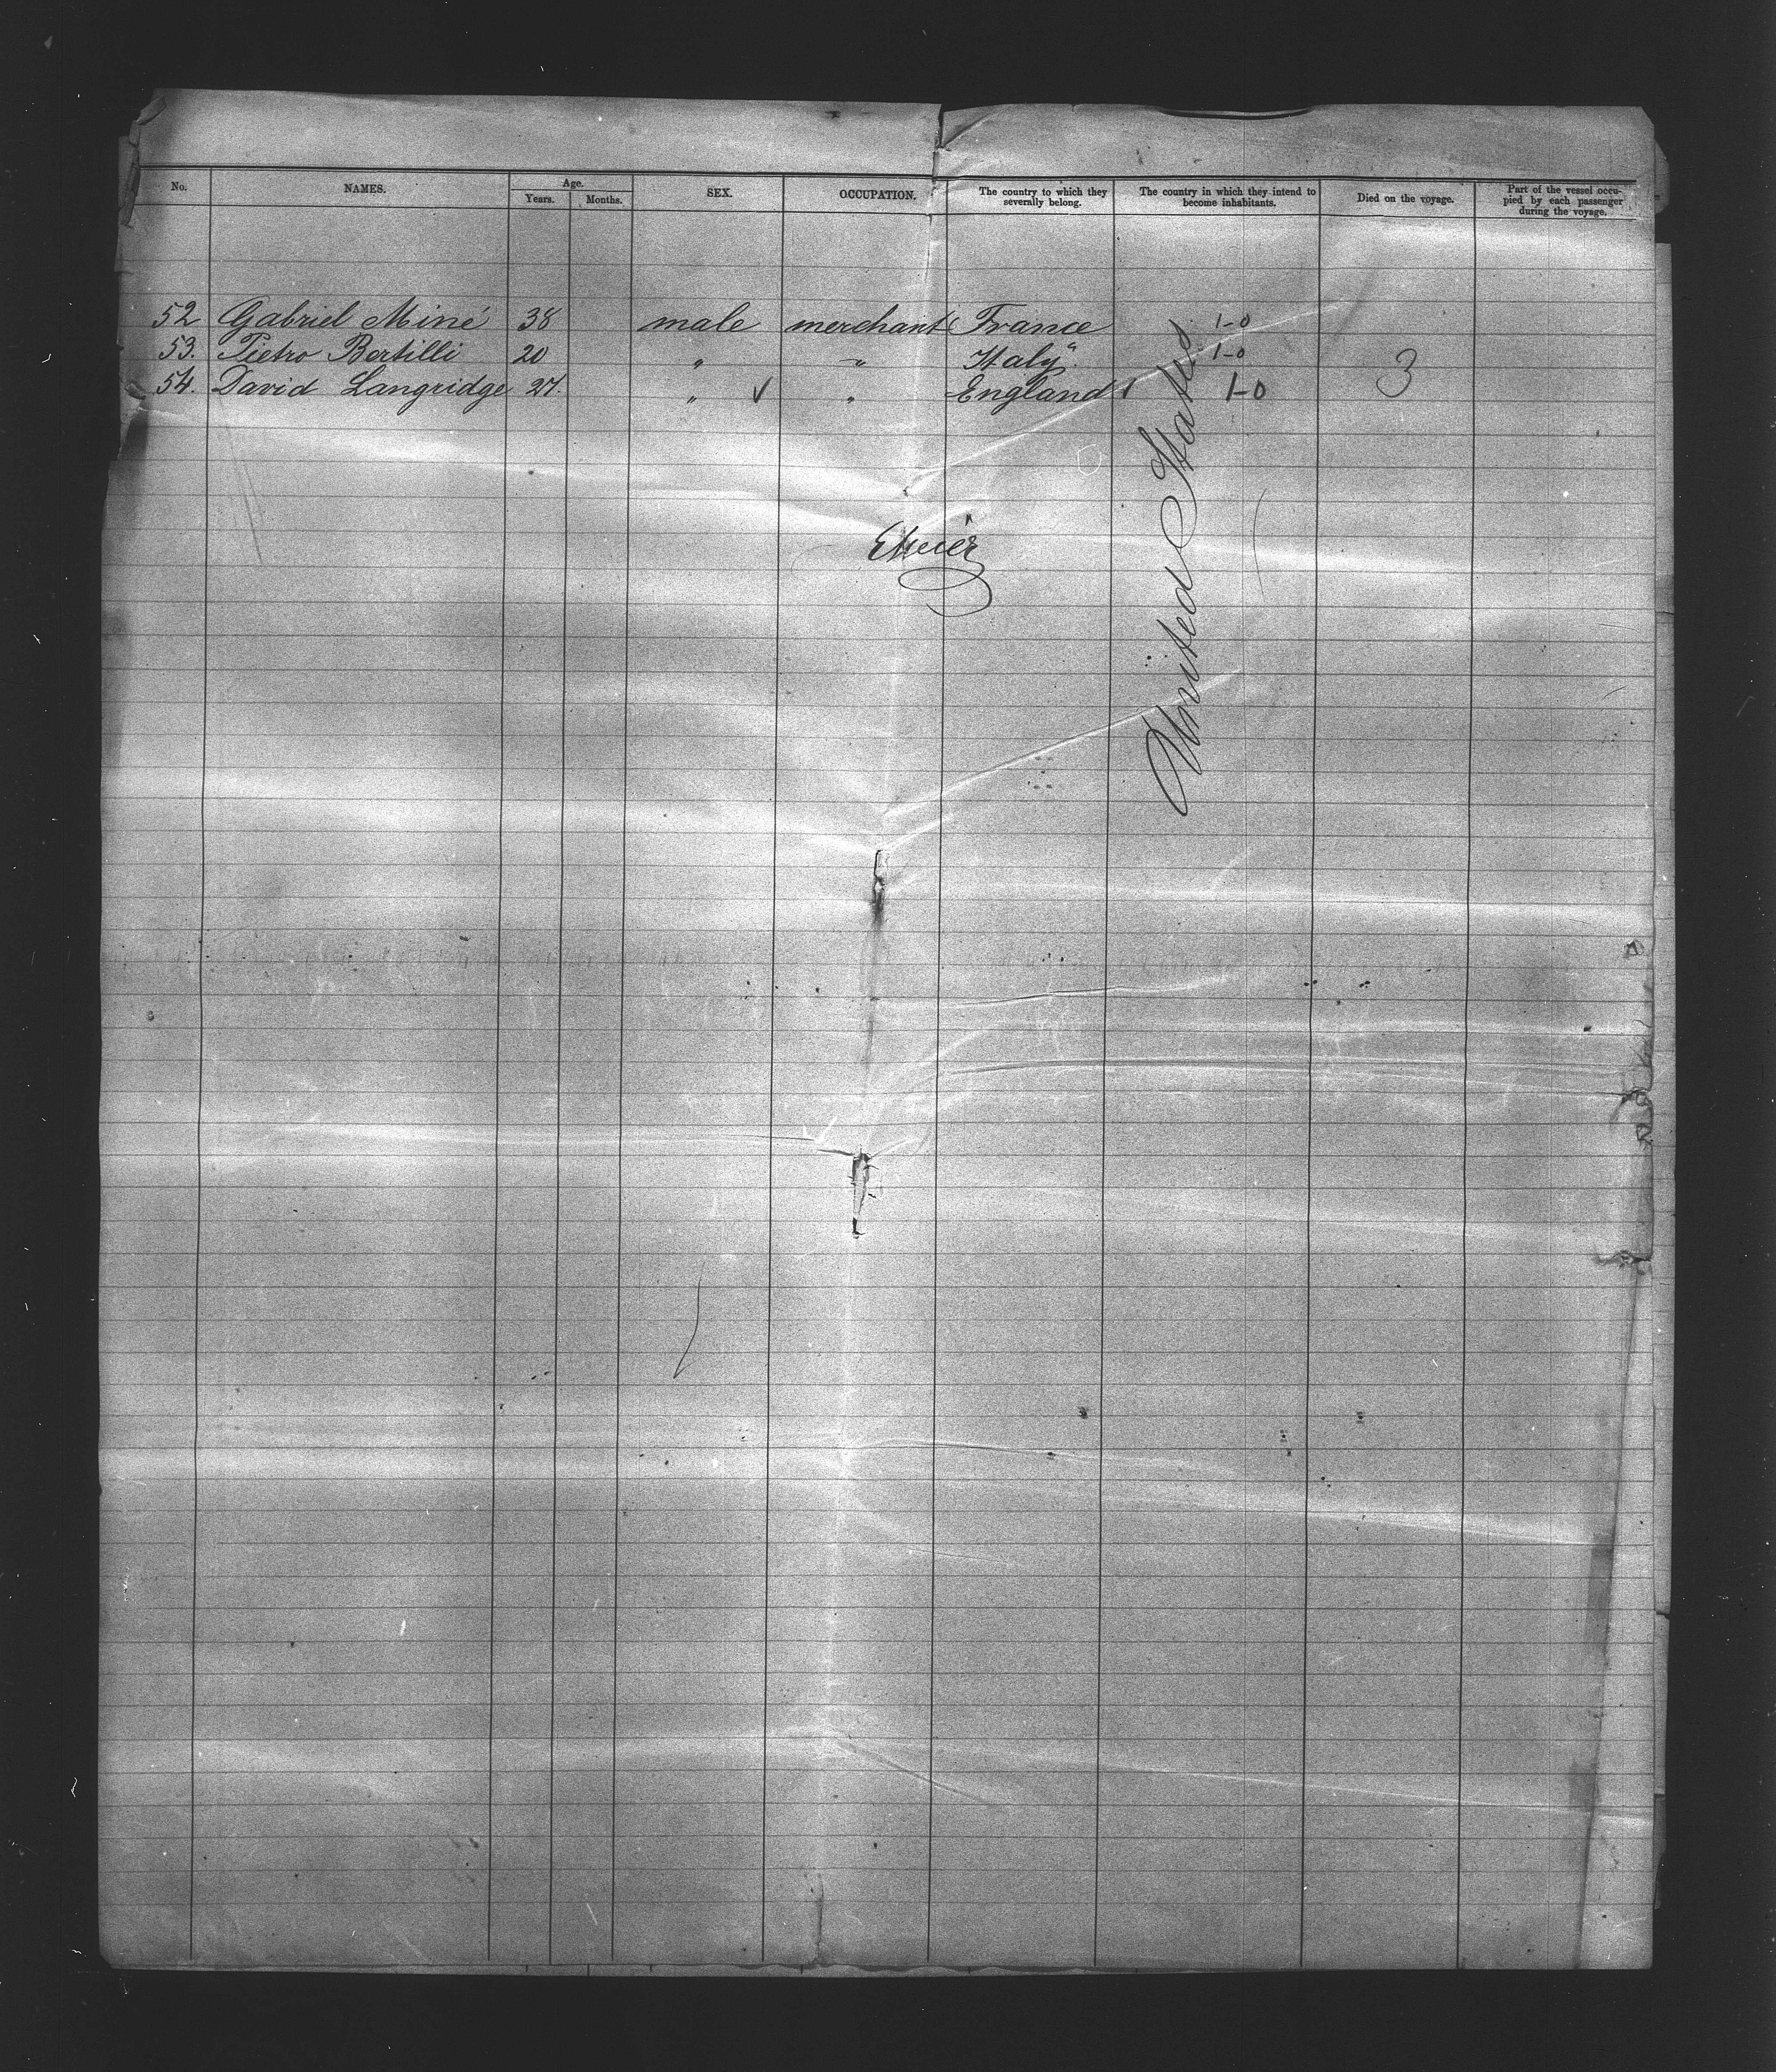 No. NAMES. Age. Years. Months. SEX. OCCUPATION. The country to which they severally belong. The country in which they intend to become inhabitants. Died on the voyage. Part of the vessel occupied by each passenger during the voyage.
52 Gabriel Miné 38 male merchant France 1-0
53. Pietro Bertilli 20 " " Italy. 1-0
54. David Langridge 27. " " England 1-0 3
United States